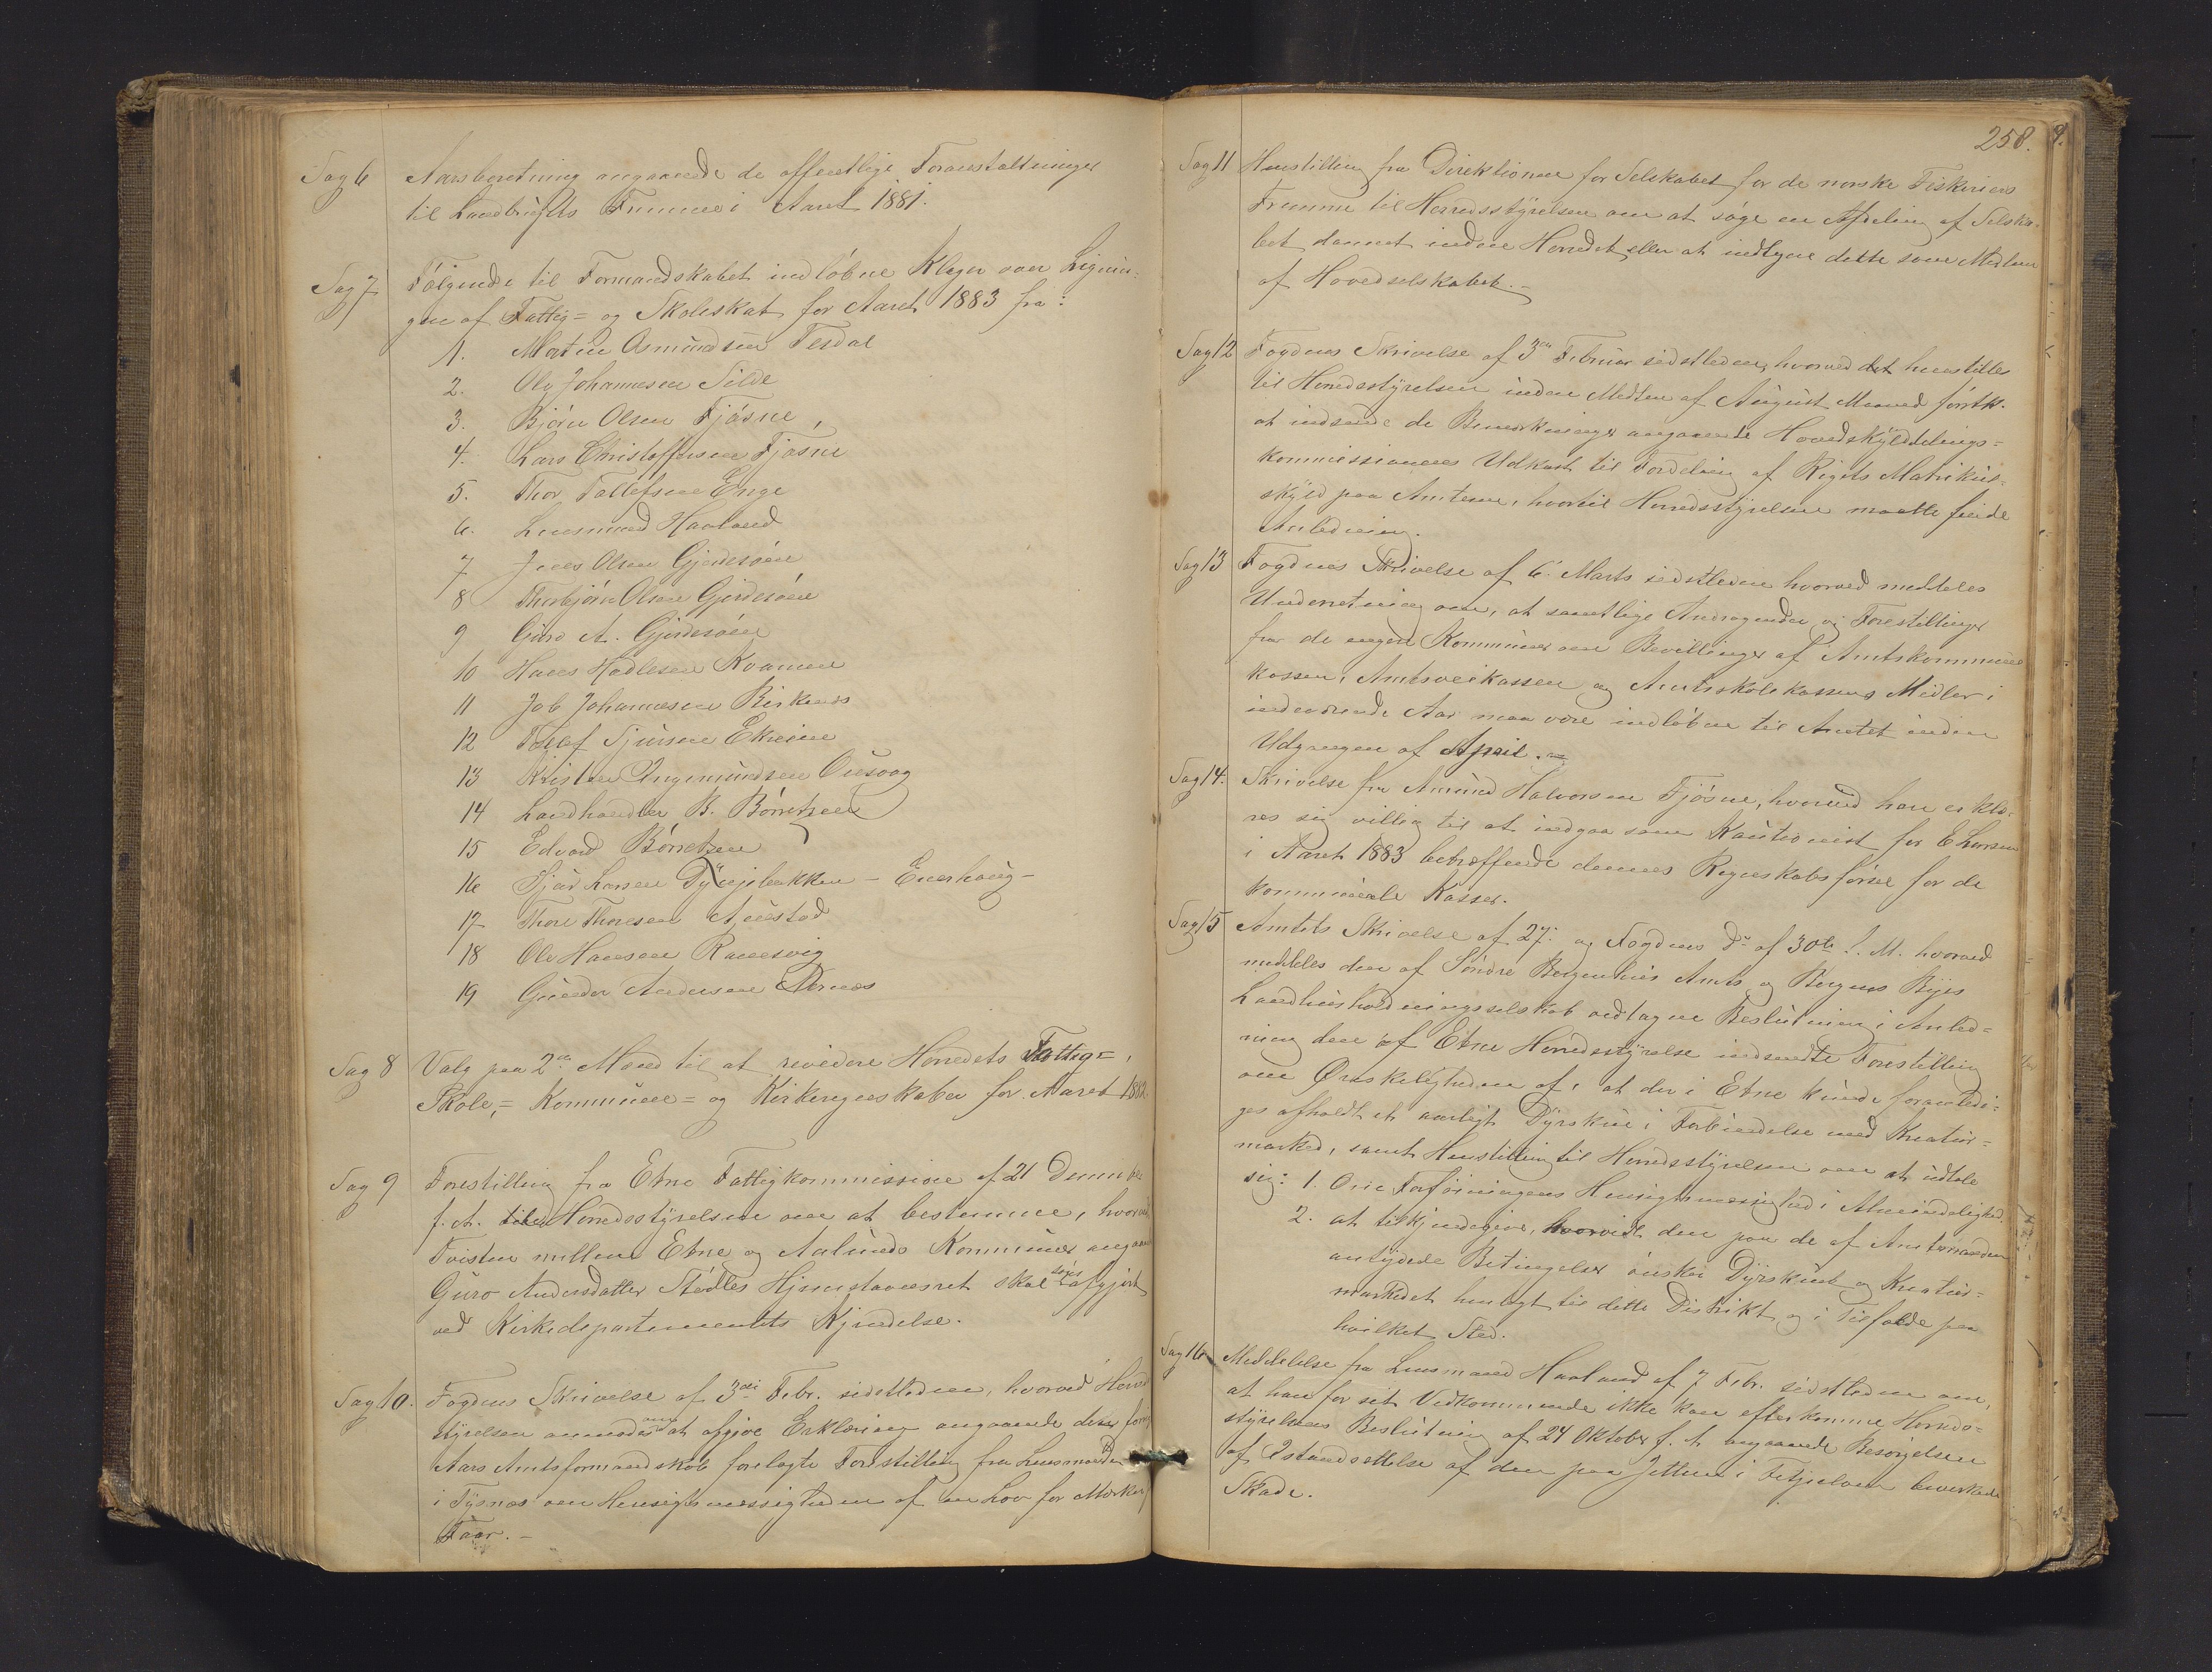 Sag 6 Aarsberetning angaaende de offentlige Foranstaltninger
til Landbrugets Fremme i Aaret 1881.
Sag 7 Følgende til Formandskabet indløbne Klager over Lignin-
gen af Fattig= og Skoleskat for Aaret 1883 fra:
1. Martin Osmundsen Tesdal
2. Ole Johannesen Silde
3. Bjørn Olsen Fjøsne
4. Lars Christoffersen Fjøsne
5. Thor Tollefsen Enge
6. Lensmand Haaland
7 Jens Olsen Gjerdesøen
8 Thorbjørn Olsen Gjerdesøen
9 Guro A. Gjerdesøen
10 Hans Hadlesen Kvamen
11 Job Johannesen Birkenes
12 Tollef Sjursen Ekreine
13 Kristen Ingemundsen Ousvog
14 Landhandler B. Børretzen
15 Edvard Børretzen
16 Sjur Larsen Dynjebakken - Enerhaug -
17 Thore Thoresen Austad
18 Ole Hansen Ramsvig
19 Gunder Andersen Nernæs
Sag 8 Valg paa 2de Mænd til at revidere Herredets Fattig=,
Skole,= Kommune= og Kirkeregnskaber for Aaret 1882.
Sag 9 Forestilling fra Etne Fattigkommission af 21 December
f. A. til Herredsstyrelsen om at bestemme, hvorved
Tvisten mellem Etne og Aalunds Kommuner angaaende
Guro Andersdatter Stødles Hjemstavnsret skal søges afgjort
ved Kirkedepartementets Kjendelse.
Sag 10. Fogdens Skrivelse af 3die Febr. sidstleden, hvorved Herreds
styrelsen anmodes om at afgive Erklæring angaaende dette forrige
Aars Amtsformandskab forelagte Forestilling fra Lensmanden
i Tysnæs om Hensigtsmæssigheden af en Lov for Mærker
Faar. -
258.
Sag 11 Henstilling fra Direktionen for Selskabet for de norske Fiskeriers
Fremme til Herredsstyrelsen om at søge en Afdeling af Selska-
bet dannet inden Herredet eller at indtegne dette som Medlem
af Hovedselskabet. -
Sag 12 Fogdens Skrivelse af 3de Februar sidstleden, hvorved det henstilles
til Herredsstyrelsen inden Medten af August Maaned førstk.
at indsende de Bemærkninger angaaende Hovedskylddelings=
kommissionens Udkast til Fordeling af Rigets Matrikul-
skyld paa Amterne, hvortil Herredsstyrelsen maatte finde
Anledning.
Sag 13 Fogdens Skrivelse af 6. Marts sidstleden hvorved meddeles
Underretning om, at samtlige Andragender og Forestillinger
fra de Kommuner om Bevillinger af Amtskommune
kassen, Amtsveikassen og Amtsskolekassens Midler i
indeværende Aar maa være indløbne til Amtet inden
Udgangen af April.
Sag 14. Skrivelse fra Amund Halvorsen Fjøsne, hvorved han erklæ-
res sig villig til at indgaa som Kautionist for E Larsen
i Aaret 1883 betræffende dennes Regnskabsførsel for de
kommunale Kasser.
Sag 15 Amtets Skrivelse af 27. og Fogdens do af 30te f. M. hvorved
meddeles den af Søndre Bergenhus Amts og Bergens Byes
Landhusholdningsselskab vedtagne Beslutning i Anled=
ning den af Etne Herredsstyrelse indsendte Forestilling
om Ønskeligheden af, at der i Etne kunde foranledi=
ges afholdt et aarligt Dyrskue i Forbindelse med Kreatur=
marked, samt Henstilling til Herredsstyrelsen om at udtale
sig: 1. Om Forføiningens Hensigtsmæssighed i Almindelighed.
2. at tilkjendegive, hvorvidt den paa de af Amtmanden
antydede Betingelser ønsker Dyrskuet og Kreatur=
markedet henlagt til dette Distrikt og i Tilfælde paa
hvilket Sted.
Sag 16 Meddelelse fra Lensmand Haaland af 7 Febr. sidstleden om,
at han for sit Vedkommende ikke kan efterkomme Herreds=
styrelsens Beslutning af 24 Oktober f. A. angaaende Besørgelsen
af Istandsættelse af den paa Jetten i bevirkede
Skade.